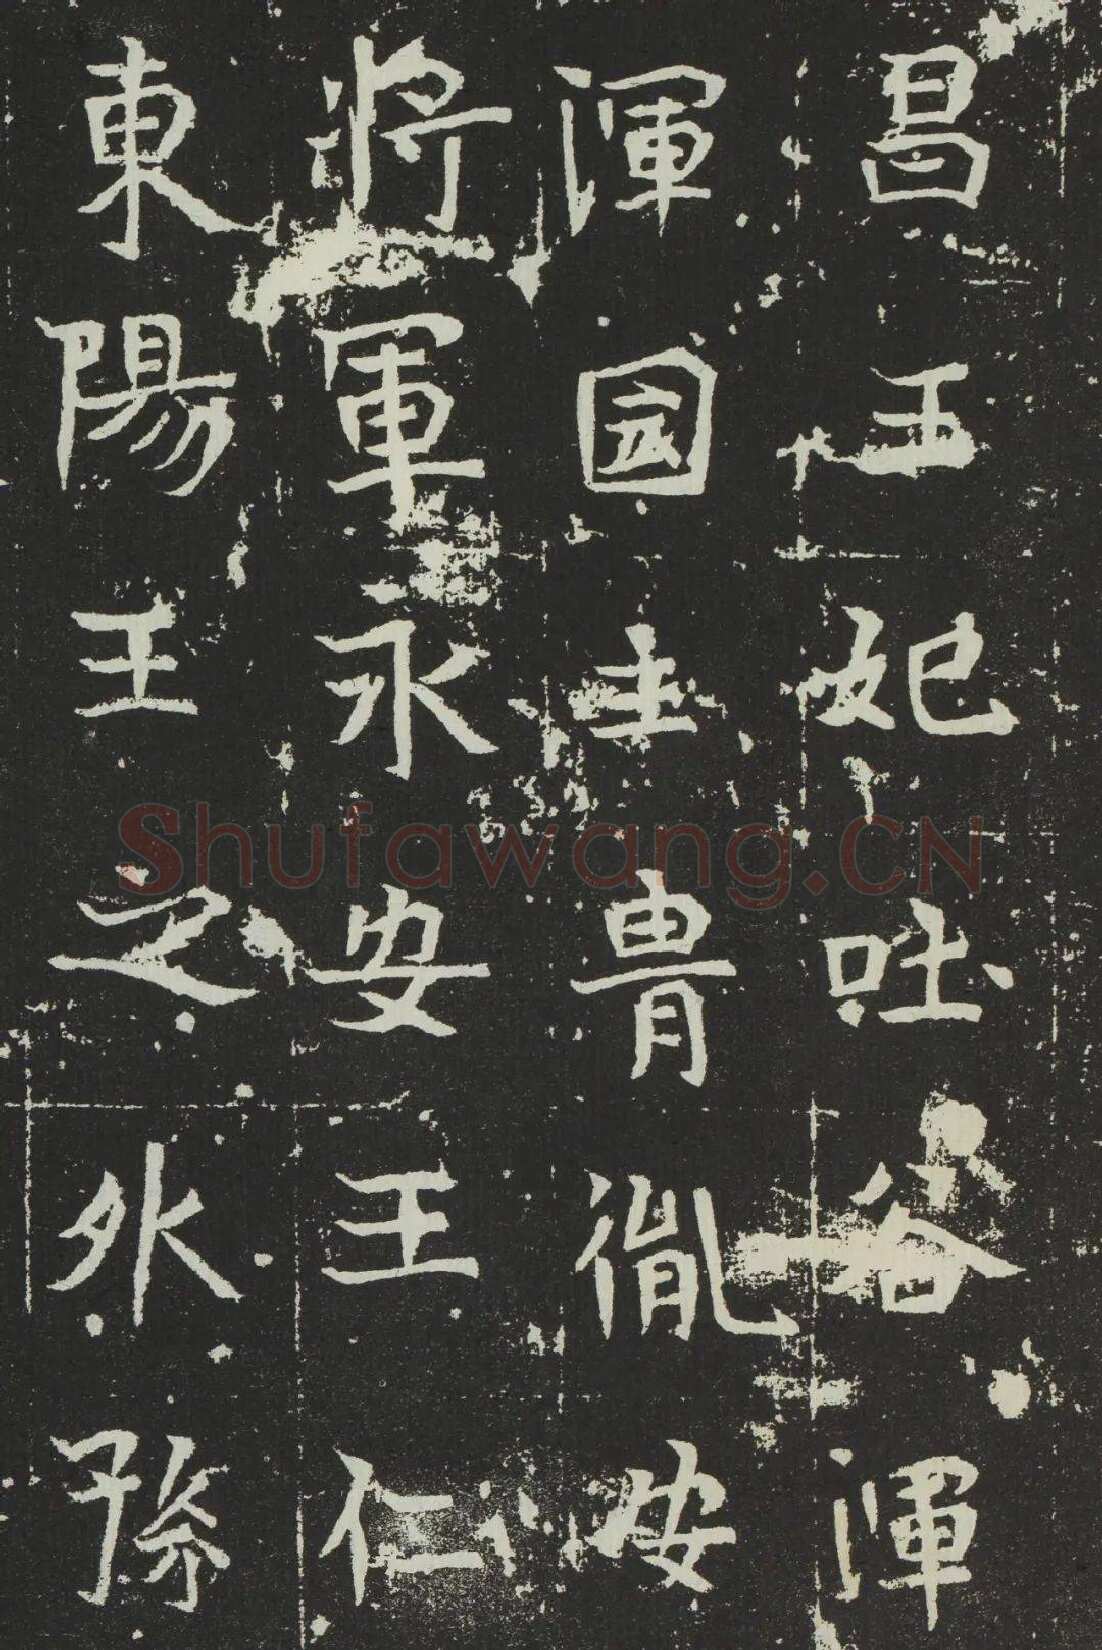 昌王妃吐谷渾
渾國主胄胤安
將軍永安王仁
東陽王之外孫
Shufawang.CN